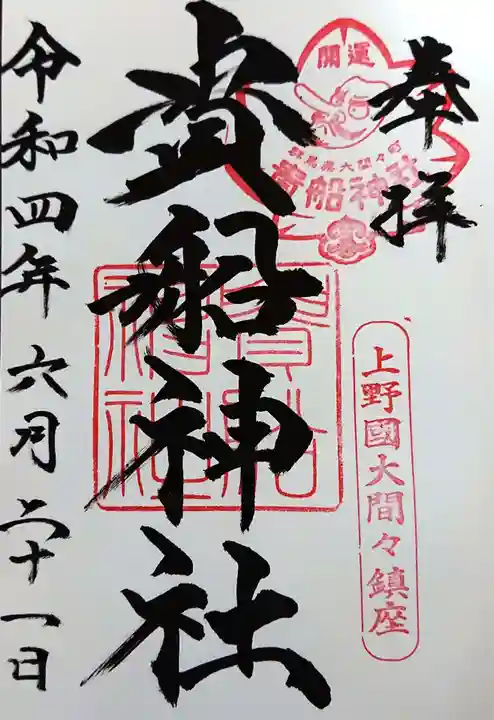 奉拝
開運
群馬県大間々町
貴船神社
上野國大間々鎮座
貴船神社
貴船神社
令和四年六月二十一日